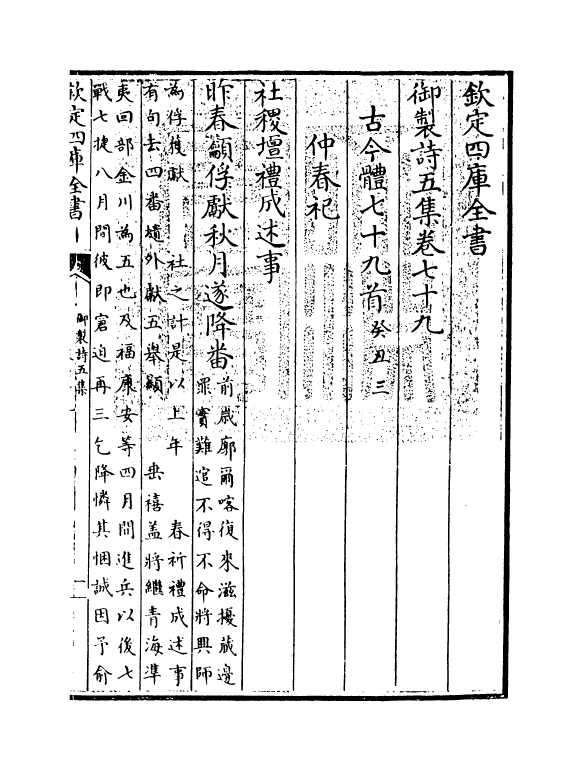 欽定四庫全書
御製詩五集卷七十九
古今體七十九首 癸丑三
仲春祀
社稷壇禮成述事
昨春籲俘獻秋月遂降番
前歲廓爾喀復來滋擾藏邊
罪實難逭不得不命將興師
為俘獲獻 社之計是以上年 春祈禮成述事
有句去四番壝外獻五舉籲 垂禧蓋將繼青海準
夷回部金川為五也及福康安等四月間進兵以後七
戰七捷八月間彼即窘迫再三乞降憐其悃誠因予俞
欽定四庫全書
御製詩五集